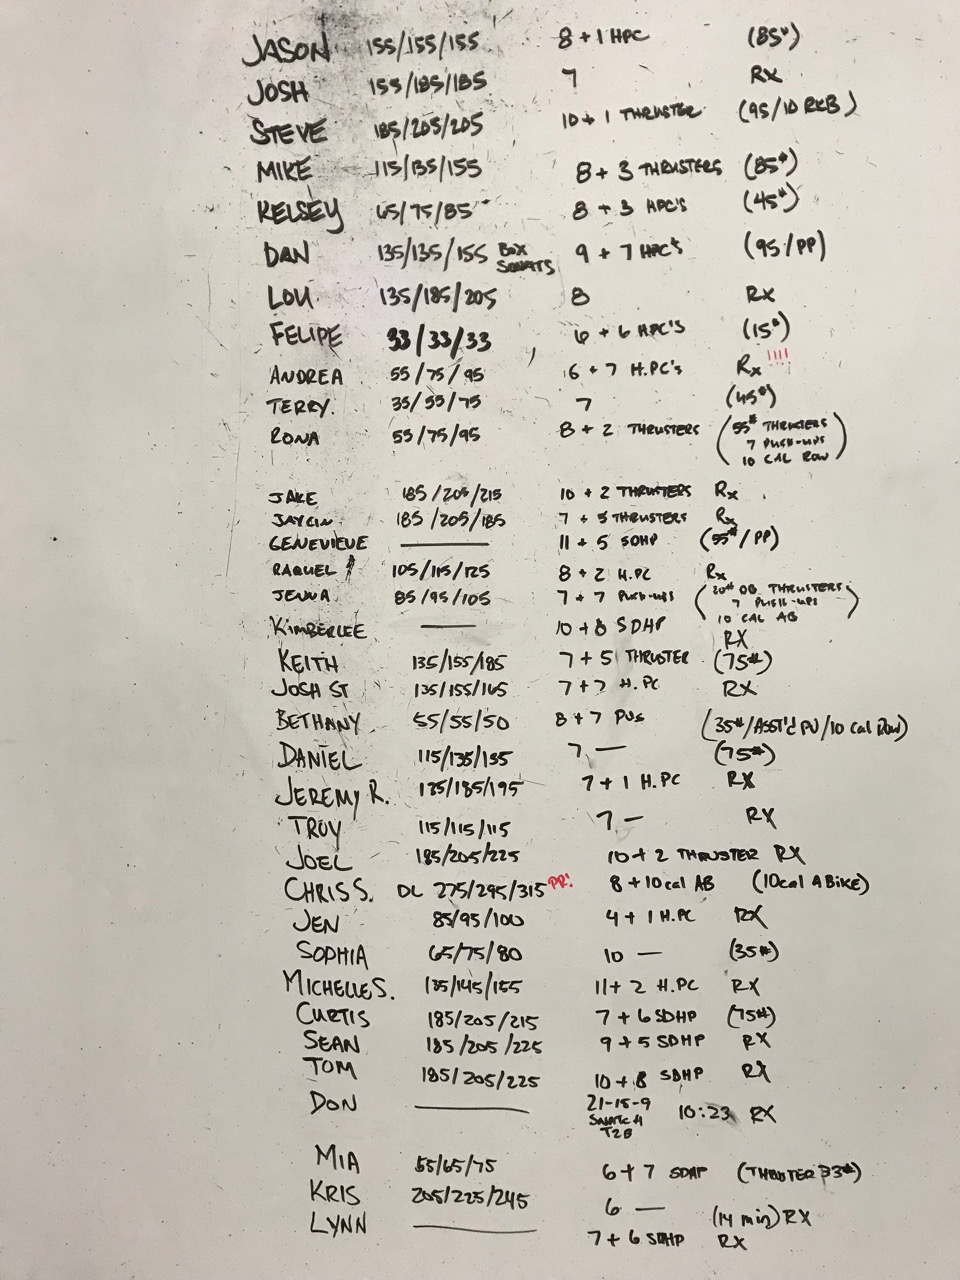 JASON 155/155/155 8 + 1 HPC (85#)
JOSH 155/185/185 7 RX
STEVE 185/205/205 10 + 1 THRUSTER (95/10 RKB)
MIKE 115/135/155 8 + 3 THRUSTERS (85#)
KELSEY 65/75/85 8 + 3 HPC'S (45#)
DAN 135/135/155 BOX SQUATS 9 + 7 HPC'S (95/PP)
LOU 135/185/205 8 RX
FELIPE 33/33/33 6 + 6 HPC'S (15#)
ANDREA 55/75/95 6 + 7 H.PC'S Rx !!!!
TERRY. 35/55/75 7 (45#)
RONA 55/75/95 8 + 2 THRUSTERS (55# THRUSTERS
7 PUSH-UPS
10 CAL ROW)
JAKE 185/205/215 10 + 2 THRUSTERS Rx
185/205/185 7 + 5 THRUSTERS Rx
GENEVIEVE — 11 + 5 SDHP (55#/PP)
RAQUEL 105/115/125 8 + 2 H.PC Rx
JENNA 85/95/105 7 + 7 PUSH-UPS (20# DB THRUSTERS
7 PUSH-UPS
10 CAL AB)
KIMBERLEE — 10 + 8 SDHP RX
KEITH 135/155/185 7 + 5 THRUSTER (75#)
JOSH ST 135/155/165 7 + 7 H.PC RX
BETHANY 55/55/50 8 + 7 PUs (35#/ASST'd PU/10 Cal Row)
DANIEL 115/135/155 7 — (75#)
JEREMY R. 135/185/195 7 + 1 H.PC RX
TROY 115/115/115 7 — RX
JOEL 185/205/225 10 + 2 THRUSTER RX
CHRIS S. DL 275/295/315 PR! 8 + 10 cal AB (10cal A BIKE)
JEN 85/95/100 4 + 1 H.PC RX
SOPHIA 65/75/80 10 — (35#)
MICHELLE S. 135/145/155 11 + 2 H.PC RX
CURTIS 185/205/215 7 + 6 SDHP (75#)
SEAN 185/205/225 9 + 5 SDHP RX
TOM 185/205/225 10 + 8 SDHP RX
DON — 21-15-9
SNATCH
T2B 10:23 RX
MIA 55/65/75 6 + 7 SDHP (THRUSTER 33#)
KRIS 205/225/245 6 — (14 min) RX
LYNN — 7 + 6 SDHP RX